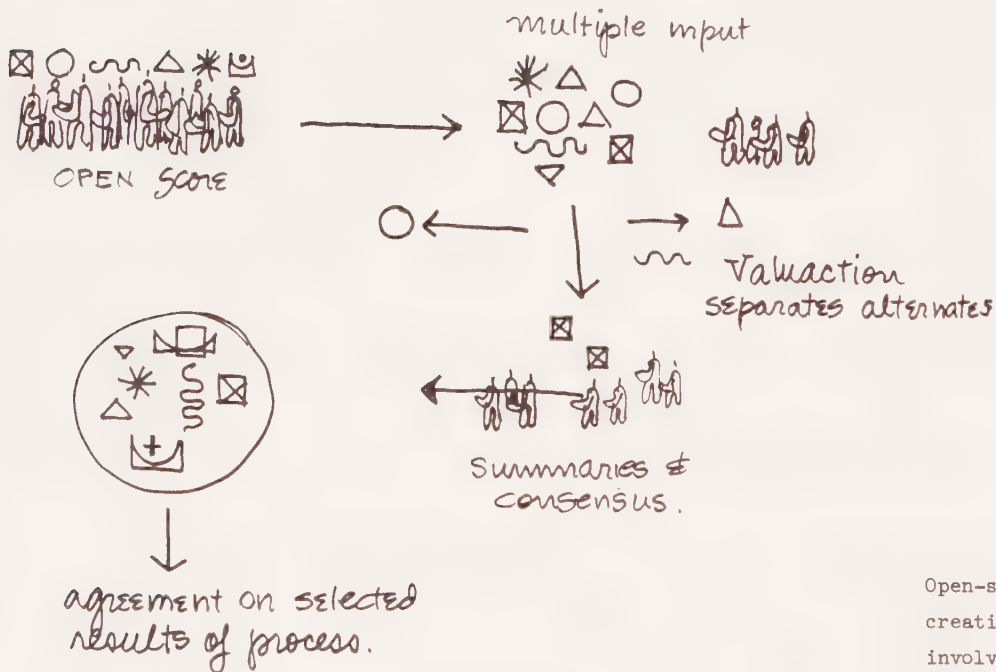 multiple input
OPEN Score
Valuaction
separates alternates
summaries &
consensus.
agreement on selected
results of process.
Open-s
creati
involv